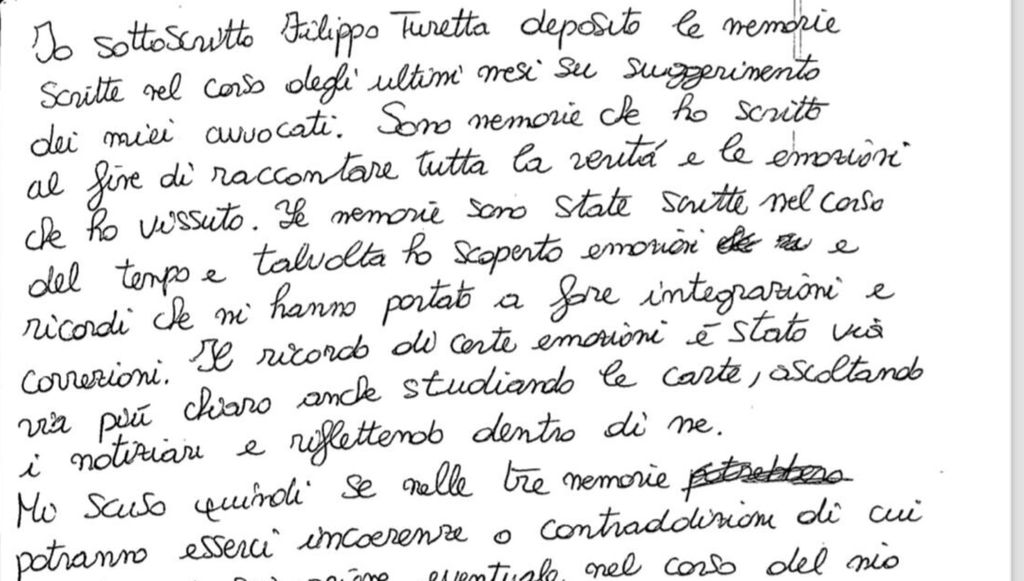 Io sottoscritto Filippo Turetta deposito le memorie
scritte nel corso degli ultimi mesi su suggerimento
dei miei avvocati. Sono memorie che ho scritto
al fine di raccontare tutta la verità e le emozioni
che ho vissuto. Le memorie sono state scritte nel corso
del tempo e talvolta ho scoperto emozioni e
ricordi che mi hanno portato a fare integrazioni e
correzioni. Il ricordo di certe emozioni è stato via
via più chiaro anche studiando le carte, ascoltando
i notiziari e riflettendo dentro di me.
Mi scuso quindi se nelle tre memorie potrebbero
potranno esserci incoerenze o contraddizioni di cui
eventuale nel corso del mio